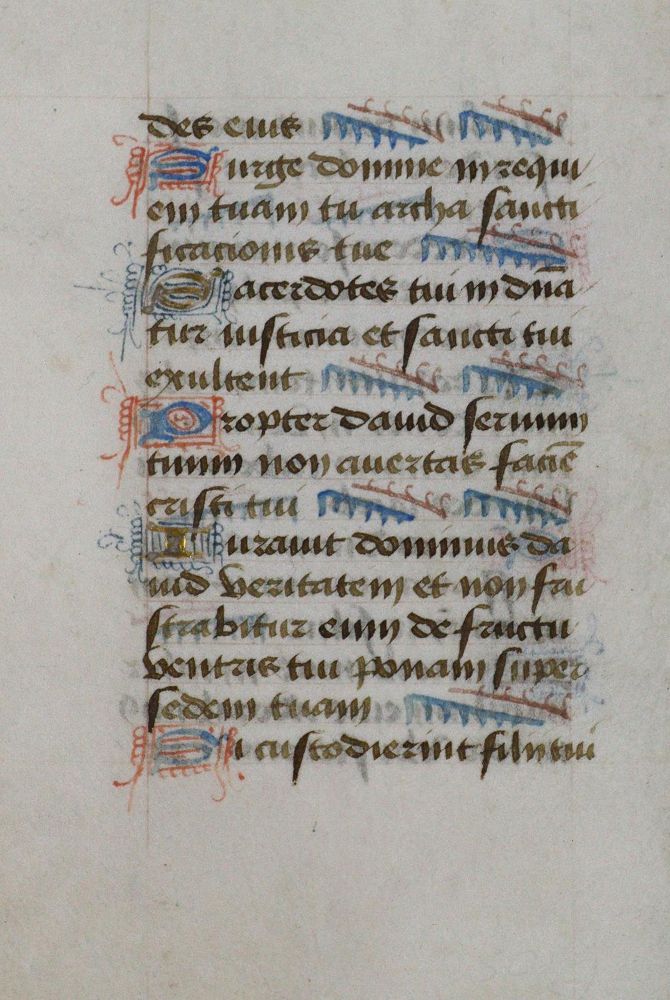 des eius
Surge domine in requi
em tuam tu archa sancti
ficacionis tue
Sacerdotes tui in duā
tur iusticia et sancti tui
exultent
Propter dauid seruum
tuum non auertas faciē
cristi tui
Iurauit dominus da
uid veritatem et non fru
strabitur eum de fructu
ventris tui ponam super
sedem tuam
Si custodierint filii tui